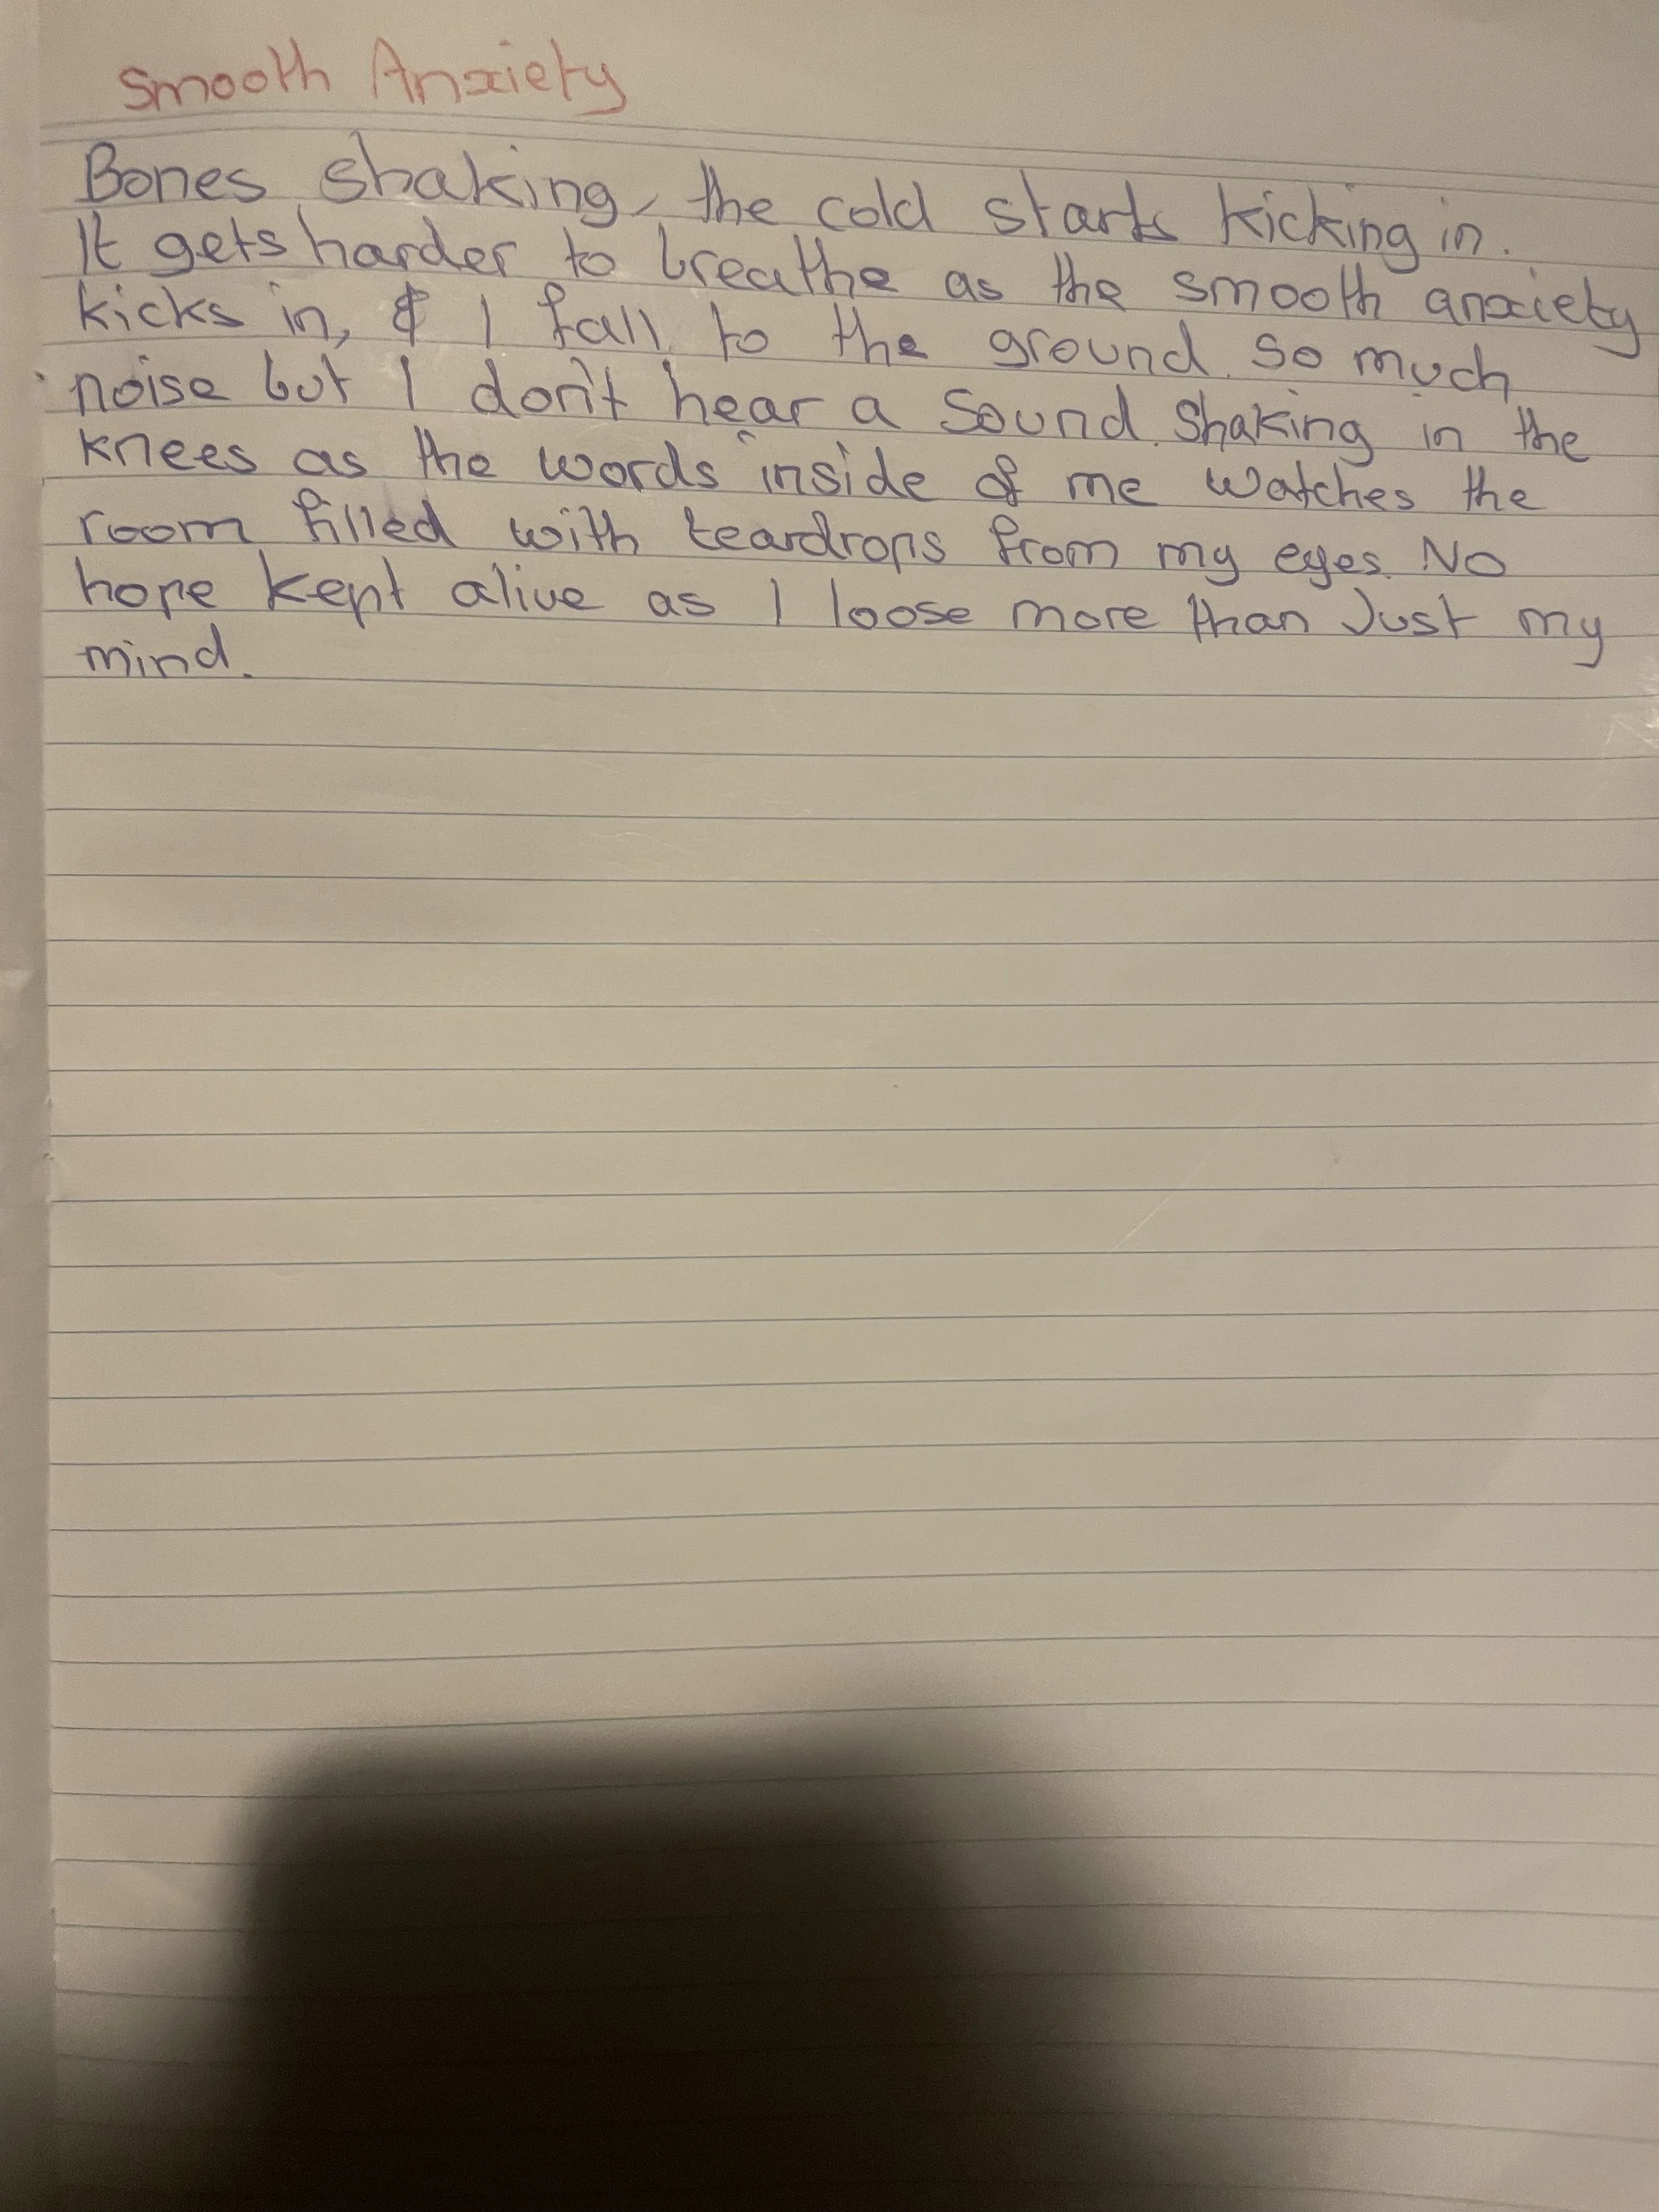 Smooth Anxiety
Bones shaking, the cold starts kicking in.
It gets harder to breathe as the smooth anxiety
kicks in, & I fall to the ground. so much
noise but I don't hear a sound. Shaking in the
knees as the words inside of me watches the
room filled with teardrops from my eyes. No
hope kept alive as I loose more than Just my
mind.